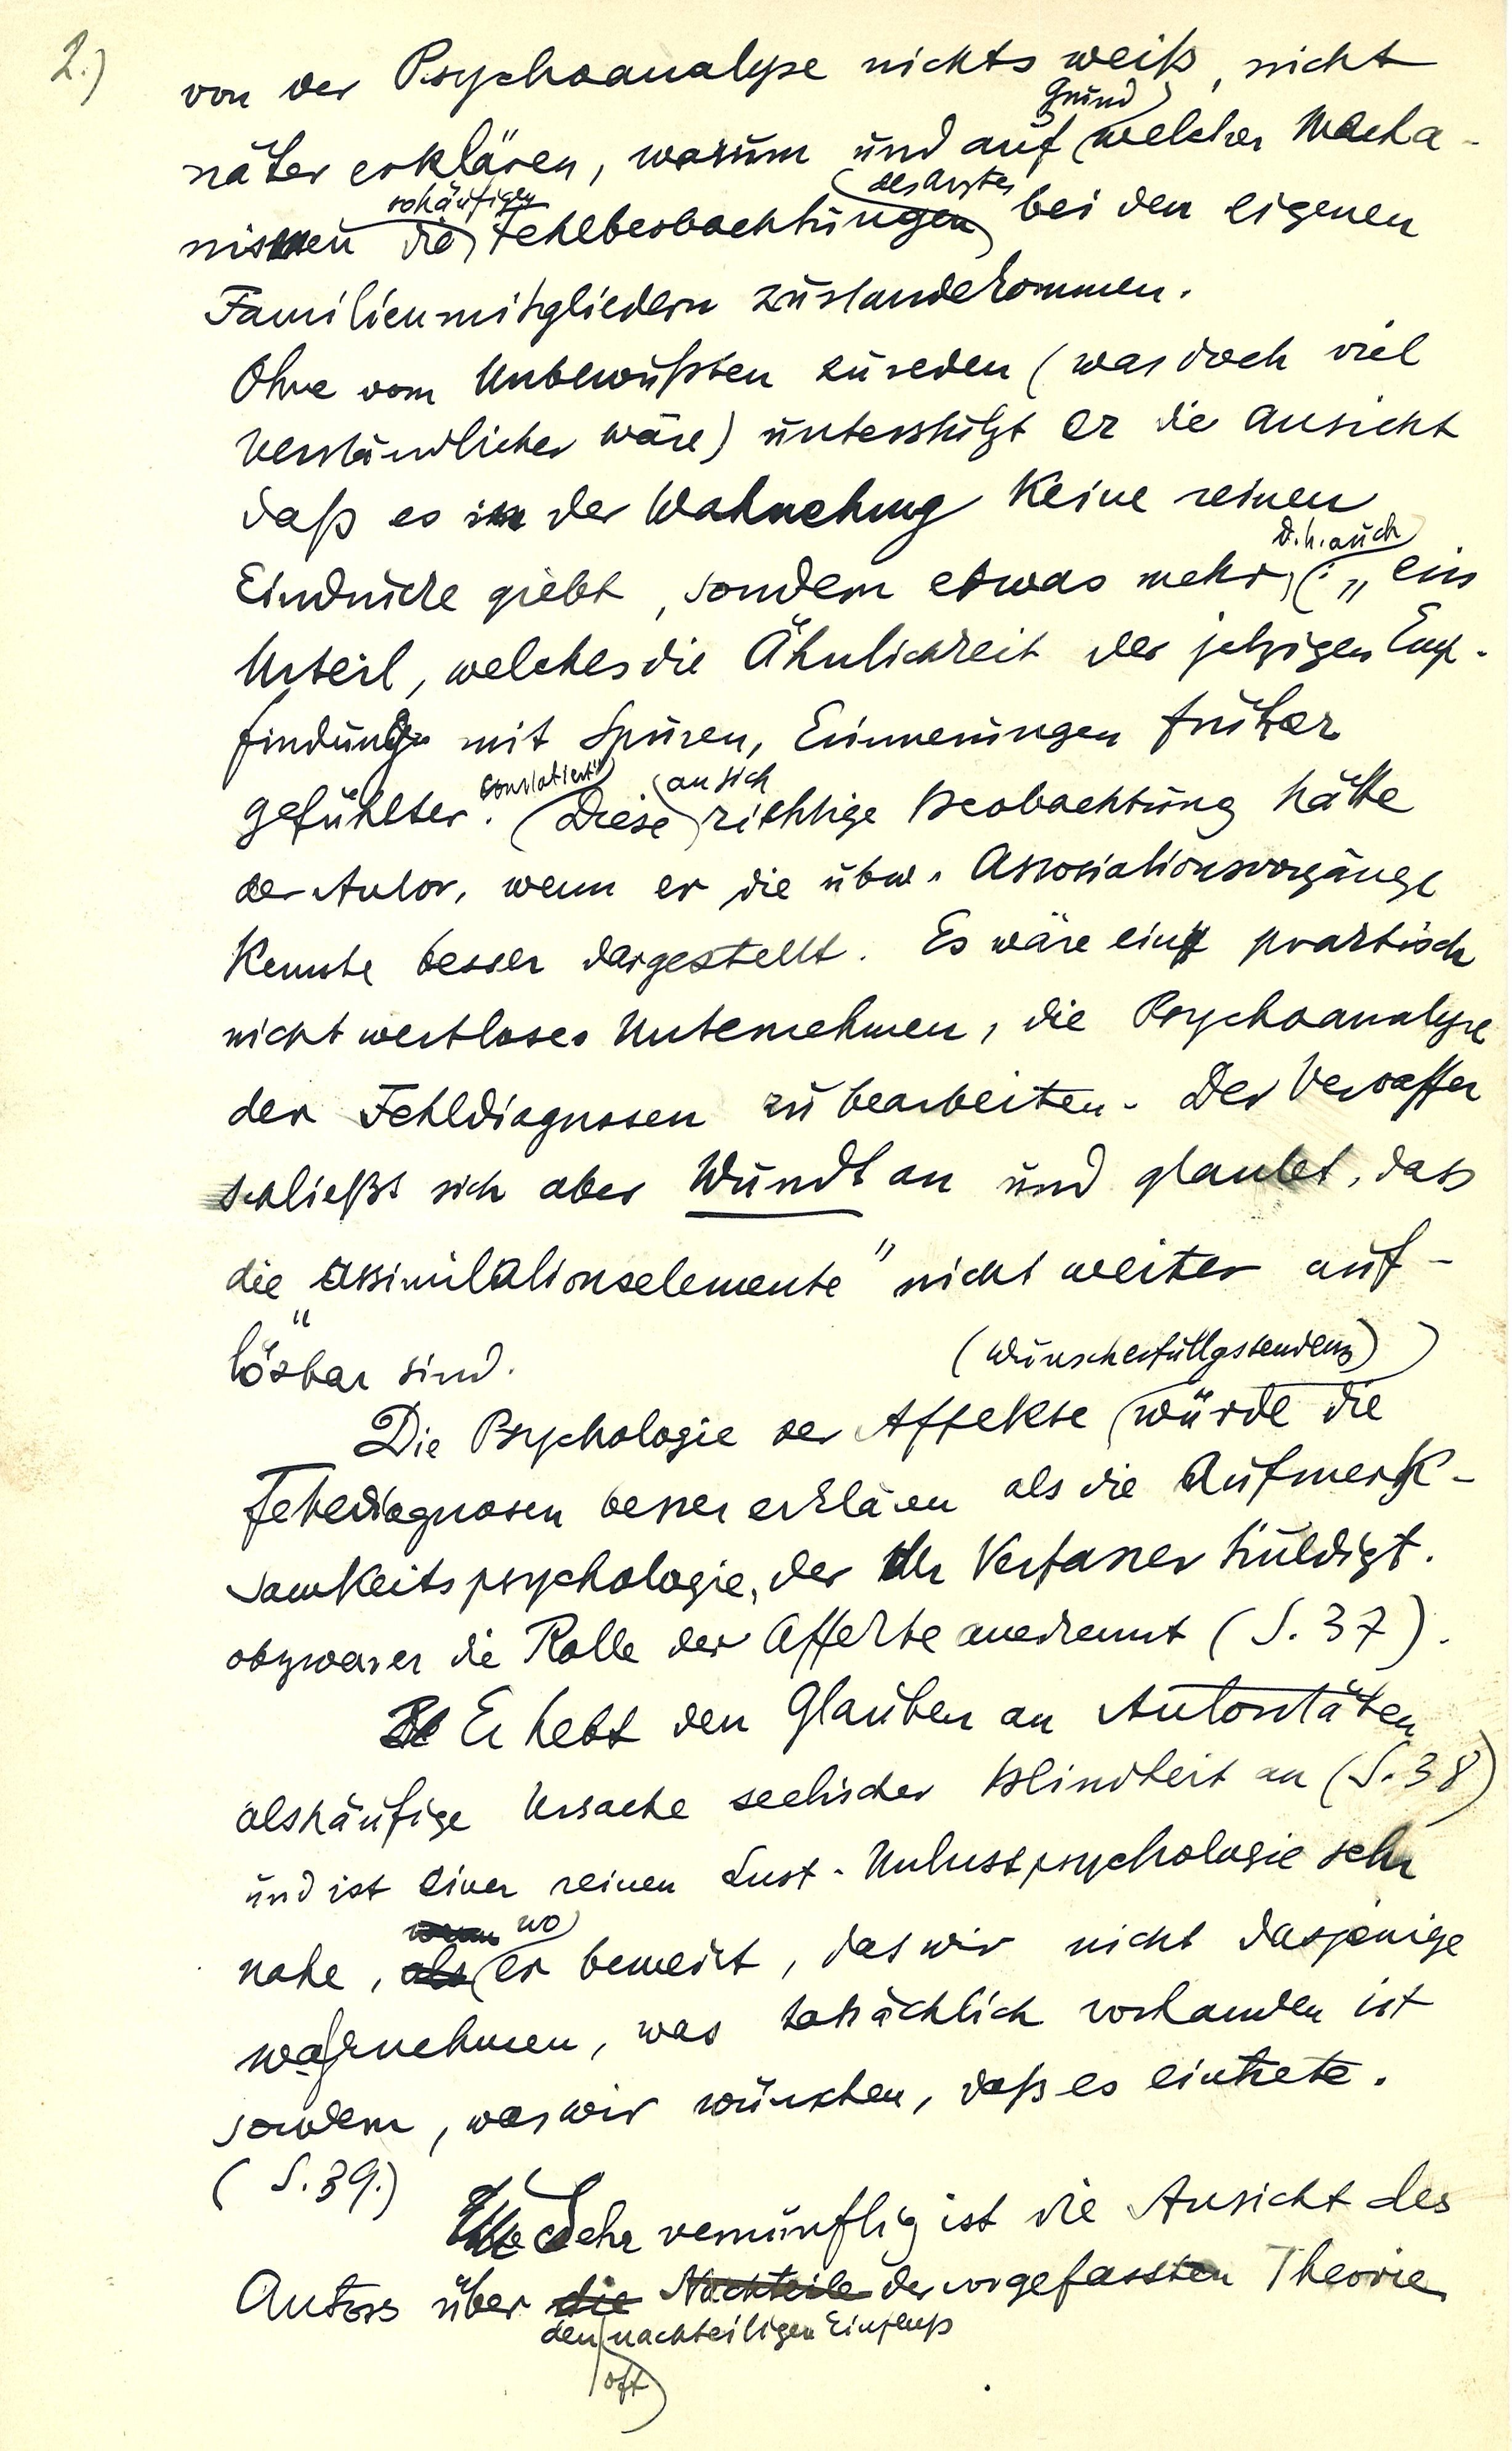 2.)
von der Psychoanalyse nichts weiß, nicht
Grund
näher erklären, warum und auf welcher Mecha-
so häufigen des Arztes
nismen die Fehlbeobachtungen bei den eigenen
Familienmitgliedern zustandekommen.
Ohne vom Unbewußten zu reden (was doch viel
verständlicher wäre) unterstützt er die Ansicht
daß es in der Wahrnehmung keine reinen
d.h. auch
Eindrücke giebt, sondern etwas mehr: „ein
Urteil, welches die Ähnlichkeit der jetzigen Emp-
findung mit Spuren, Erinnerungen früher
constatiert" an sich
gefühlter. Diese richtige Beobachtung hätte
der Autor, wenn er die ubw. Associationsvorgänge
kennte besser dargestellt. Es wäre ein praktisch
nicht wertloses Unternehmen, die Psychoanalyse
der Fehldiagnosen zu bearbeiten. Der Verfasser
schließt sich aber Wundt an und glaubt, dass
die „Assimilationselemente" nicht weiter auf-
lösbar sind.
(Wunscherfüllgstendenz)
Die Psychologie der Affekte würde die
Fehldiagnosen besser erklären als die Aufmerk-
samkeitspsychologie, der der Verfasser huldigt.
obzwar er die Rolle der Affekte anerkennt (S. 37).
Er hebt den Glauben an Autoritäten
als häufige Ursache seelischer Blindheit an (S. 38)
und ist einer reinen Lust-Unlustpsychologie sehr
wo
nahe, er bemerkt, das wir nicht dasjenige
wahrnehmen, was tatsächlich vorhanden ist
sondern, was wir wünschen, daß es eintrete.
(S. 39.)
Sehr vernünftig ist die Ansicht des
Autors über die Nachteile der vorgefassten Theorie
den nachteiligen Einfluß
oft